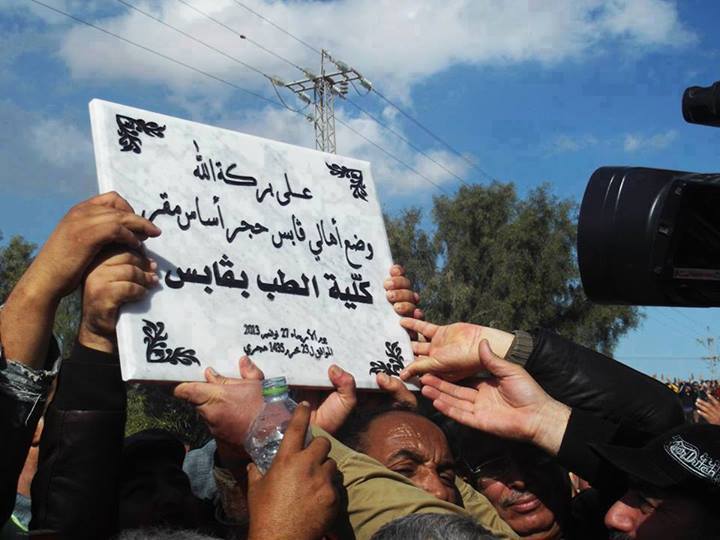 على بركة الله
وضع أهالي ڨابس حجر أساس مقر
كلّية الطب بڨابس
يوم الأربعاء 27 نوفمبر 2013
الموافق لـ 23 محرم 1435 هجري